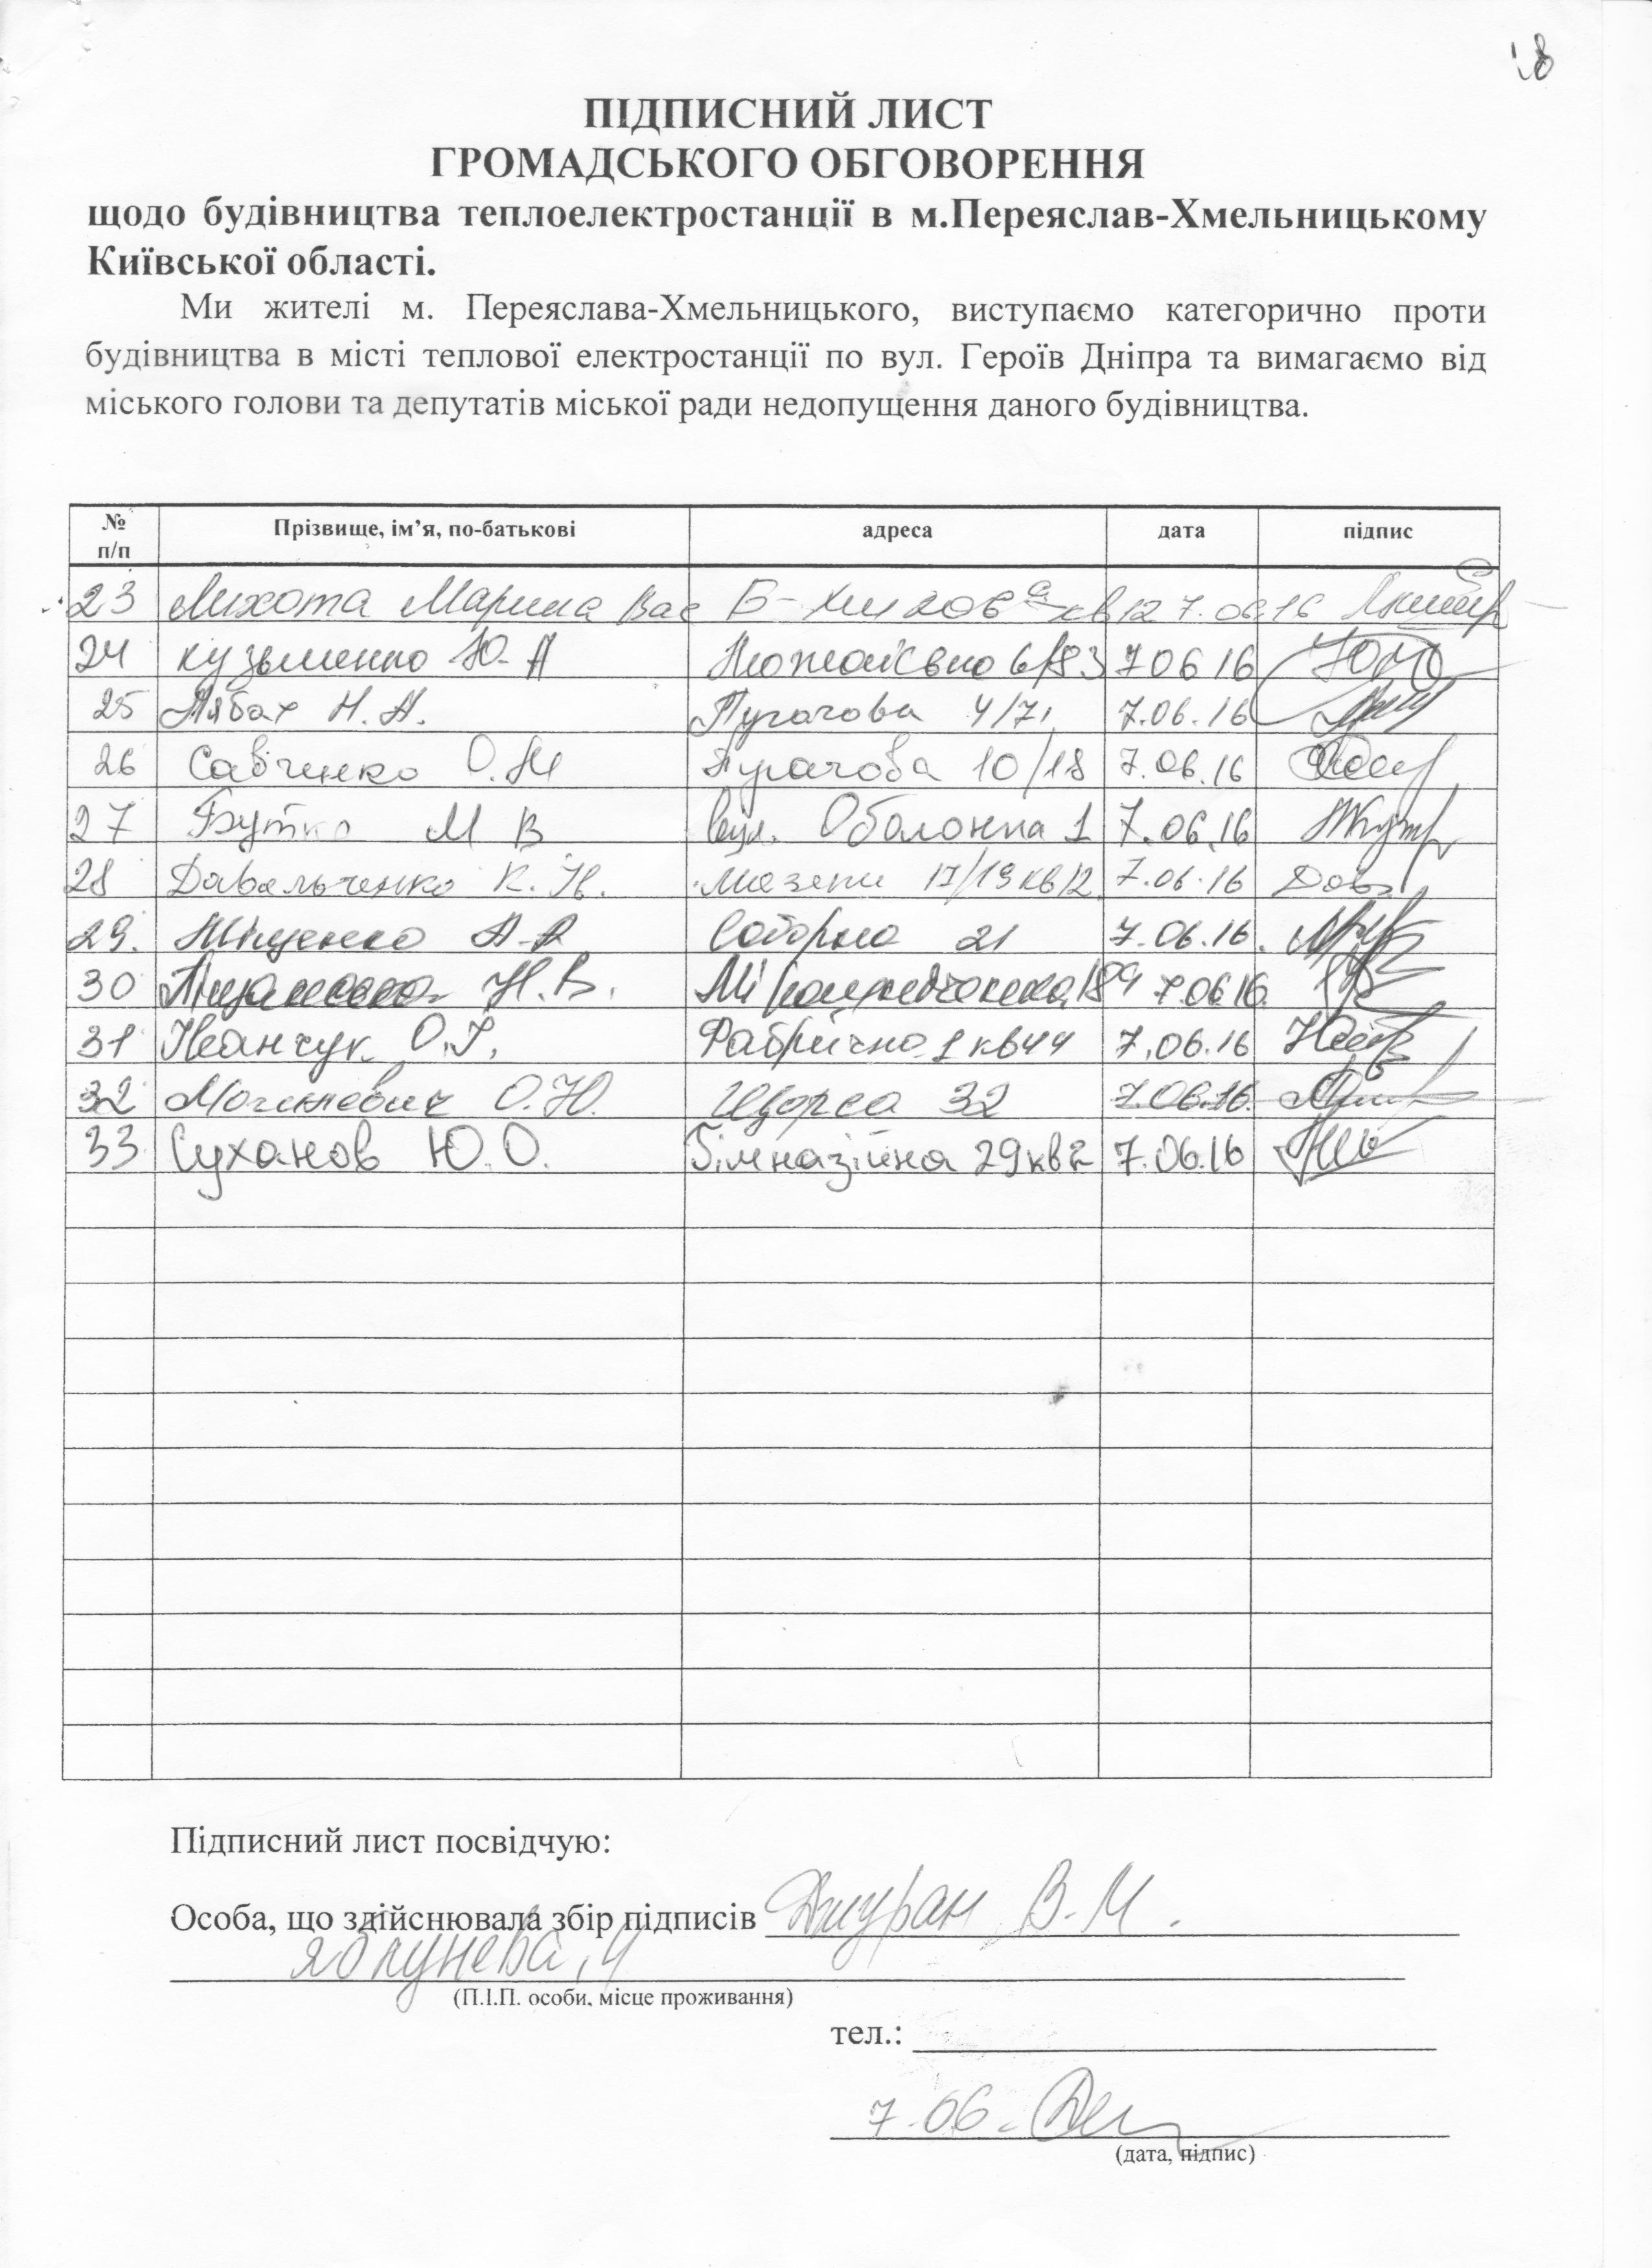 ПІДПИСНИЙ ЛИСТ
ГРОМАДСЬКОГО ОБГОВОРЕННЯ
щодо будівництва теплоелектростанції в м.Переяслав-Хмельницькому
Київської області.
Ми жителі м. Переяслава-Хмельницького, виступаємо категорично проти
будівництва в місті теплової електростанції по вул. Героїв Дніпра та вимагаємо від
міського голови та депутатів міської ради недопущення даного будівництва.
№ п/п Прізвище, ім’я, по-батькові адреса дата підпис
23 Лихота Марина Вас Б-Хм кв 12 7.06.16
24 Кузьменко Ю-А 6/83 7 06 16
25 Лябах Н.А. Пугачова 4/71 7.06.16
26 Савченко О.М Пугачова 10/18 7.06.16
27 Бутко М В вул. Оболонна 1 7.06.16
28 К.Н. Мазепи 17/19 кв 12 7.06.16
29. А-А Соборна 21 7.06.16.
30 Н.В. 7.06.16.
31 Іванчук О.І. Фабрична 1 кв 44 7.06.16
32 О.Ю. Щорса 32 7.06.16.
33 Суханов Ю.О. Гімназійна 29 кв 2 7.06.16
Підписний лист посвідчую:
Особа, що здійснювала збір підписів Джуран В.М.
Яблунева, 4
(П.І.П. особи, місце проживання)
тел.:
7.06.
(дата, підпис)